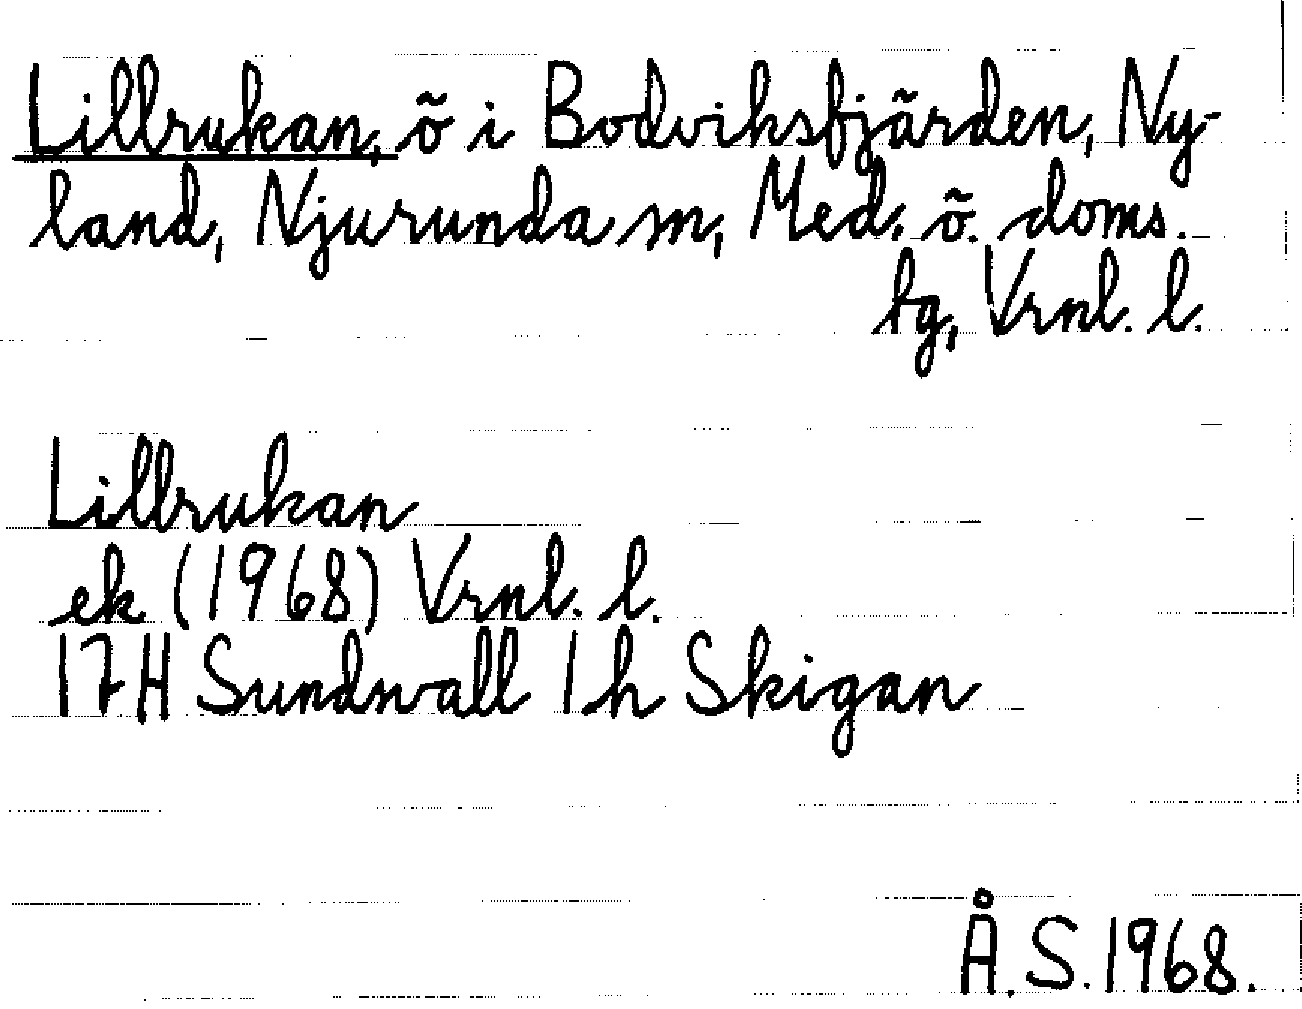 Lillrukan, õ i Bodviksfjãrden, Ny-
land, Njurunda sn, Med. õ. doms.
fg, Vrnl. l.
Lillrukan
ek (1968) Vrnl. l.
17H Sundsvall 1h Skigan
Å.S. 1968.